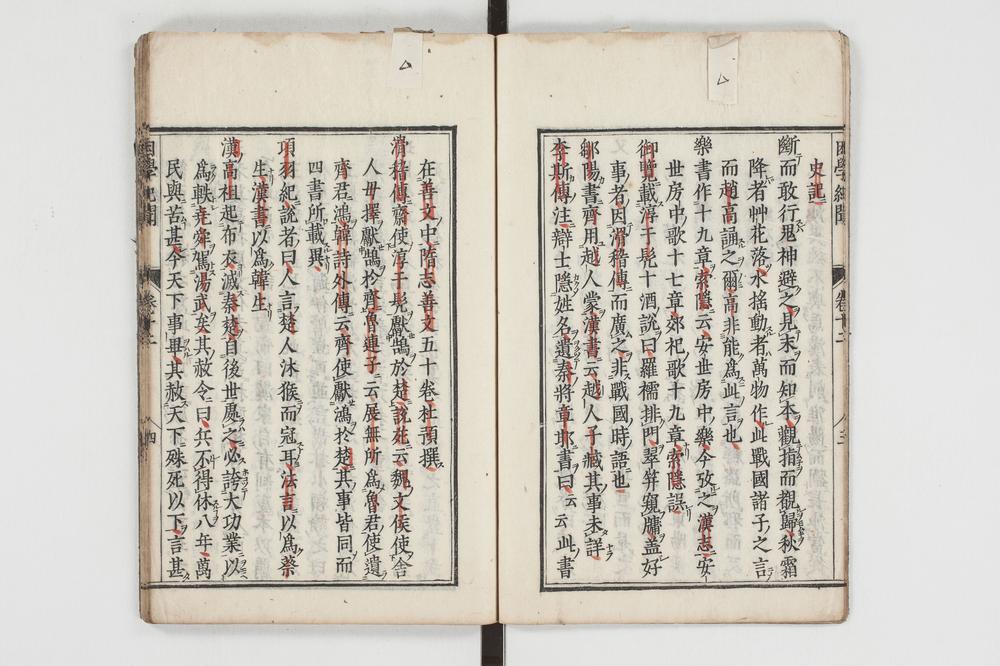 困學紀聞
卷十二
三
史記
斷而敢行鬼神避之見末而知本觀指而覩歸秋霜
降者艸花落水搖動者萬物作此戰國諸子之言
而趙高誦之爾高非能爲此言也
樂書作十九章索隱云安世房中樂今攷之漢志安
世房中歌十七章郊祀歌十九章索隱誤
御覽載淳于髡十酒説曰羅襦排門翠笄窺牖盖好
事者因滑稽傳而廣之非戰國時語也
鄒陽書齊用越人蒙漢書云越人子臧其事未詳
李斯傳注辯士隱姓名遺秦將章邯書曰云云此書
在善文中隋志善文五十卷杜預撰
滑稽傳齊使淳于髡獻鵠於楚説苑云魏文侯使舍
人毋擇獻鵠於齊魯連子云展無所爲魯君使遺
齊君鴻韓詩外傳云齊使獻鴻於楚其事皆同而
四書所載異
項羽紀説者曰人言楚人沐猴而冠耳法言以爲蔡
生漢書以爲韓生
漢高祖起布衣滅秦楚自後世處之必誇大功業以
爲軼堯舜駕湯武矣其赦令曰兵不得休八年萬
民與苦甚今天下事畢其赦天下殊死以下言甚
困學紀聞
卷十二
四